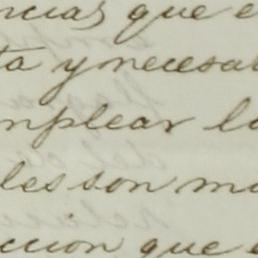 ncias que e
ta y necesar
mplear lo
les son ma
ccion que